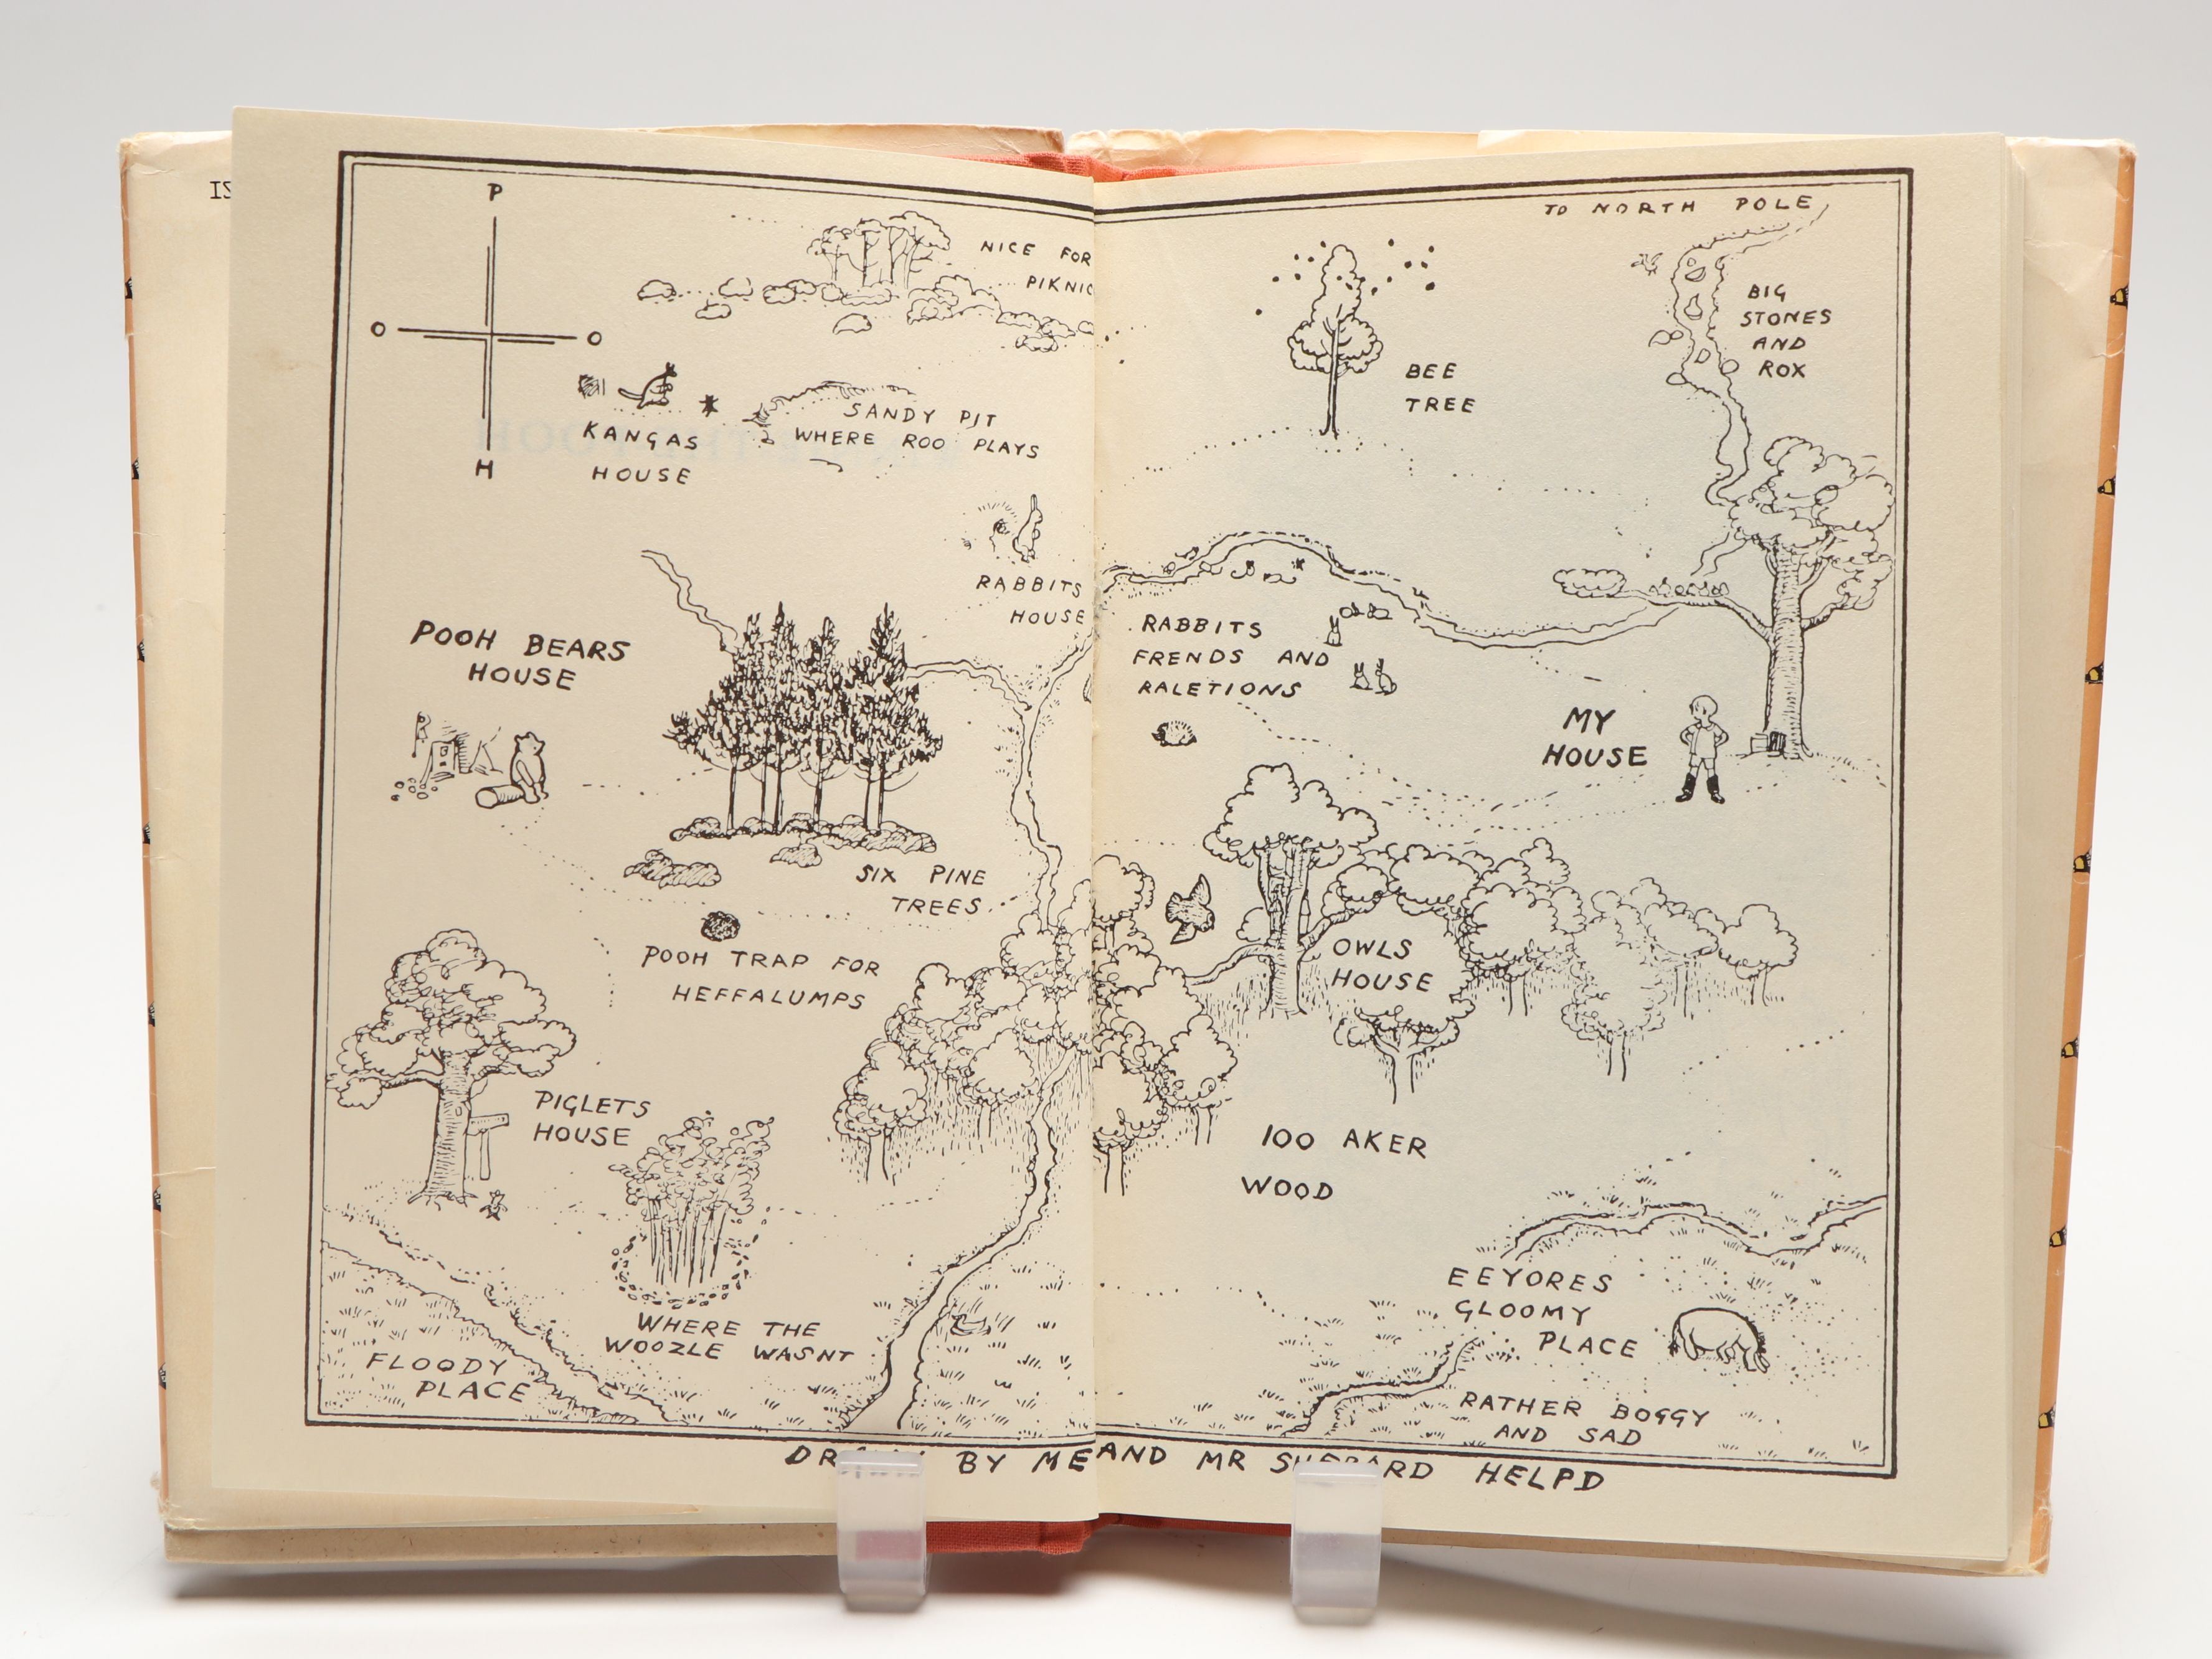 IS
P
O O
H
NICE FOR
PIKNIC
KANGAS
HOUSE
SANDY PIT
WHERE ROO PLAYS
RABBITS
HOUSE
POOH BEARS
HOUSE
SIX PINE
TREES
POOH TRAP FOR
HEFFALUMPS
PIGLETS
HOUSE
WHERE THE
WOOZLE WASNT
FLOODY
PLACE
TO NORTH POLE
BIG
STONES
AND
ROX
BEE
TREE
RABBITS
FRENDS AND
RALETIONS
MY
HOUSE
OWLS
HOUSE
100 AKER
WOOD
EEYORES
GLOOMY
PLACE
RATHER BOGGY
AND SAD
BY ME AND MR HELPD